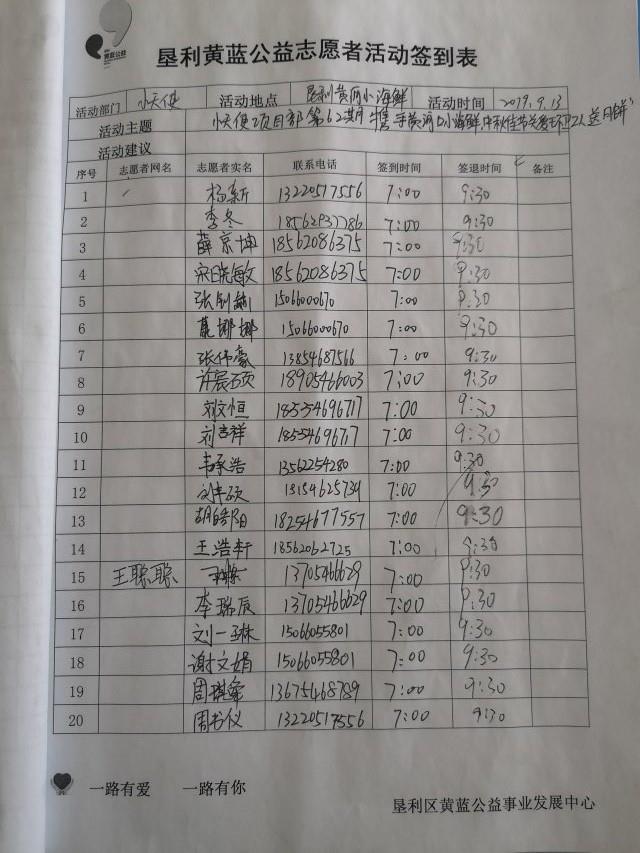 黄蓝公益
垦利黄蓝公益志愿者活动签到表
活动部门 小天使 活动地点 垦利黄河小海鲜 活动时间 2019.9.13
活动主题 小天使项目部第62期 售手黄河口小海鲜中秋佳节关爱环卫工人送月饼
活动建议
序号 志愿者网名 志愿者实名 联系电话 签到时间 签退时间 备注
1 杨新 13220517556 7:00 9:30
2 李冬 18562937786 7:00 9:30
3 薛京坤 18562086375 7:00 9:30
4 宋晓敏 18562086375 7:00 9:30
5 15066000670 7:00 9:30
6 娜娜 15066000670 7:00 9:30
7 张伟豪 13854687566 7:00 9:30
8 许宸硕 18905466003 7:00 9:30
9 刘文恒 18554696717 7:00 9:30
10 刘吉祥 18554696717 7:00 9:30
11 韦承浩 13562254280 7:00 9:30
12 刘硕 13154625739 7:00 9:30
13 胡皓阳 18254677557 7:00 9:30
14 王浩轩 18562062725 7:00 9:30
15 王聪聪 13705466629 7:00 9:30
16 李瑞辰 13705466629 7:00 9:30
17 刘一琳 15066055801 7:00 9:30
18 谢文娟 15066055801 7:00 9:30
19 周琪 13675468789 7:00 9:30
20 周书仪 13220517556 7:00 9:30
一路有爱 一路有你
垦利区黄蓝公益事业发展中心